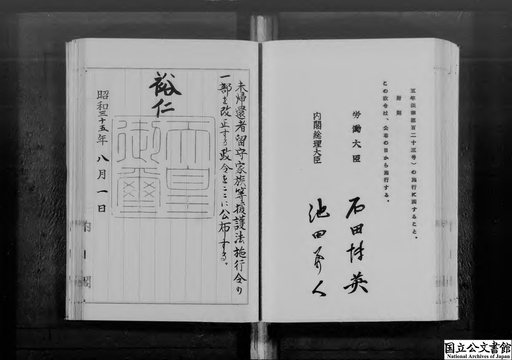 五年法律第百二十三号)の施行に関すること。
附則
この政令は、公布の日から施行する。
労働大臣 石田博英
内閣総理大臣 池田勇人
未帰還者留守家族等援護法施行令の
一部を改正する政令をここに公布する。
裕仁
天皇御璽
昭和三十五年八月一日
内閣
国立公文書館
National Archives of Japan